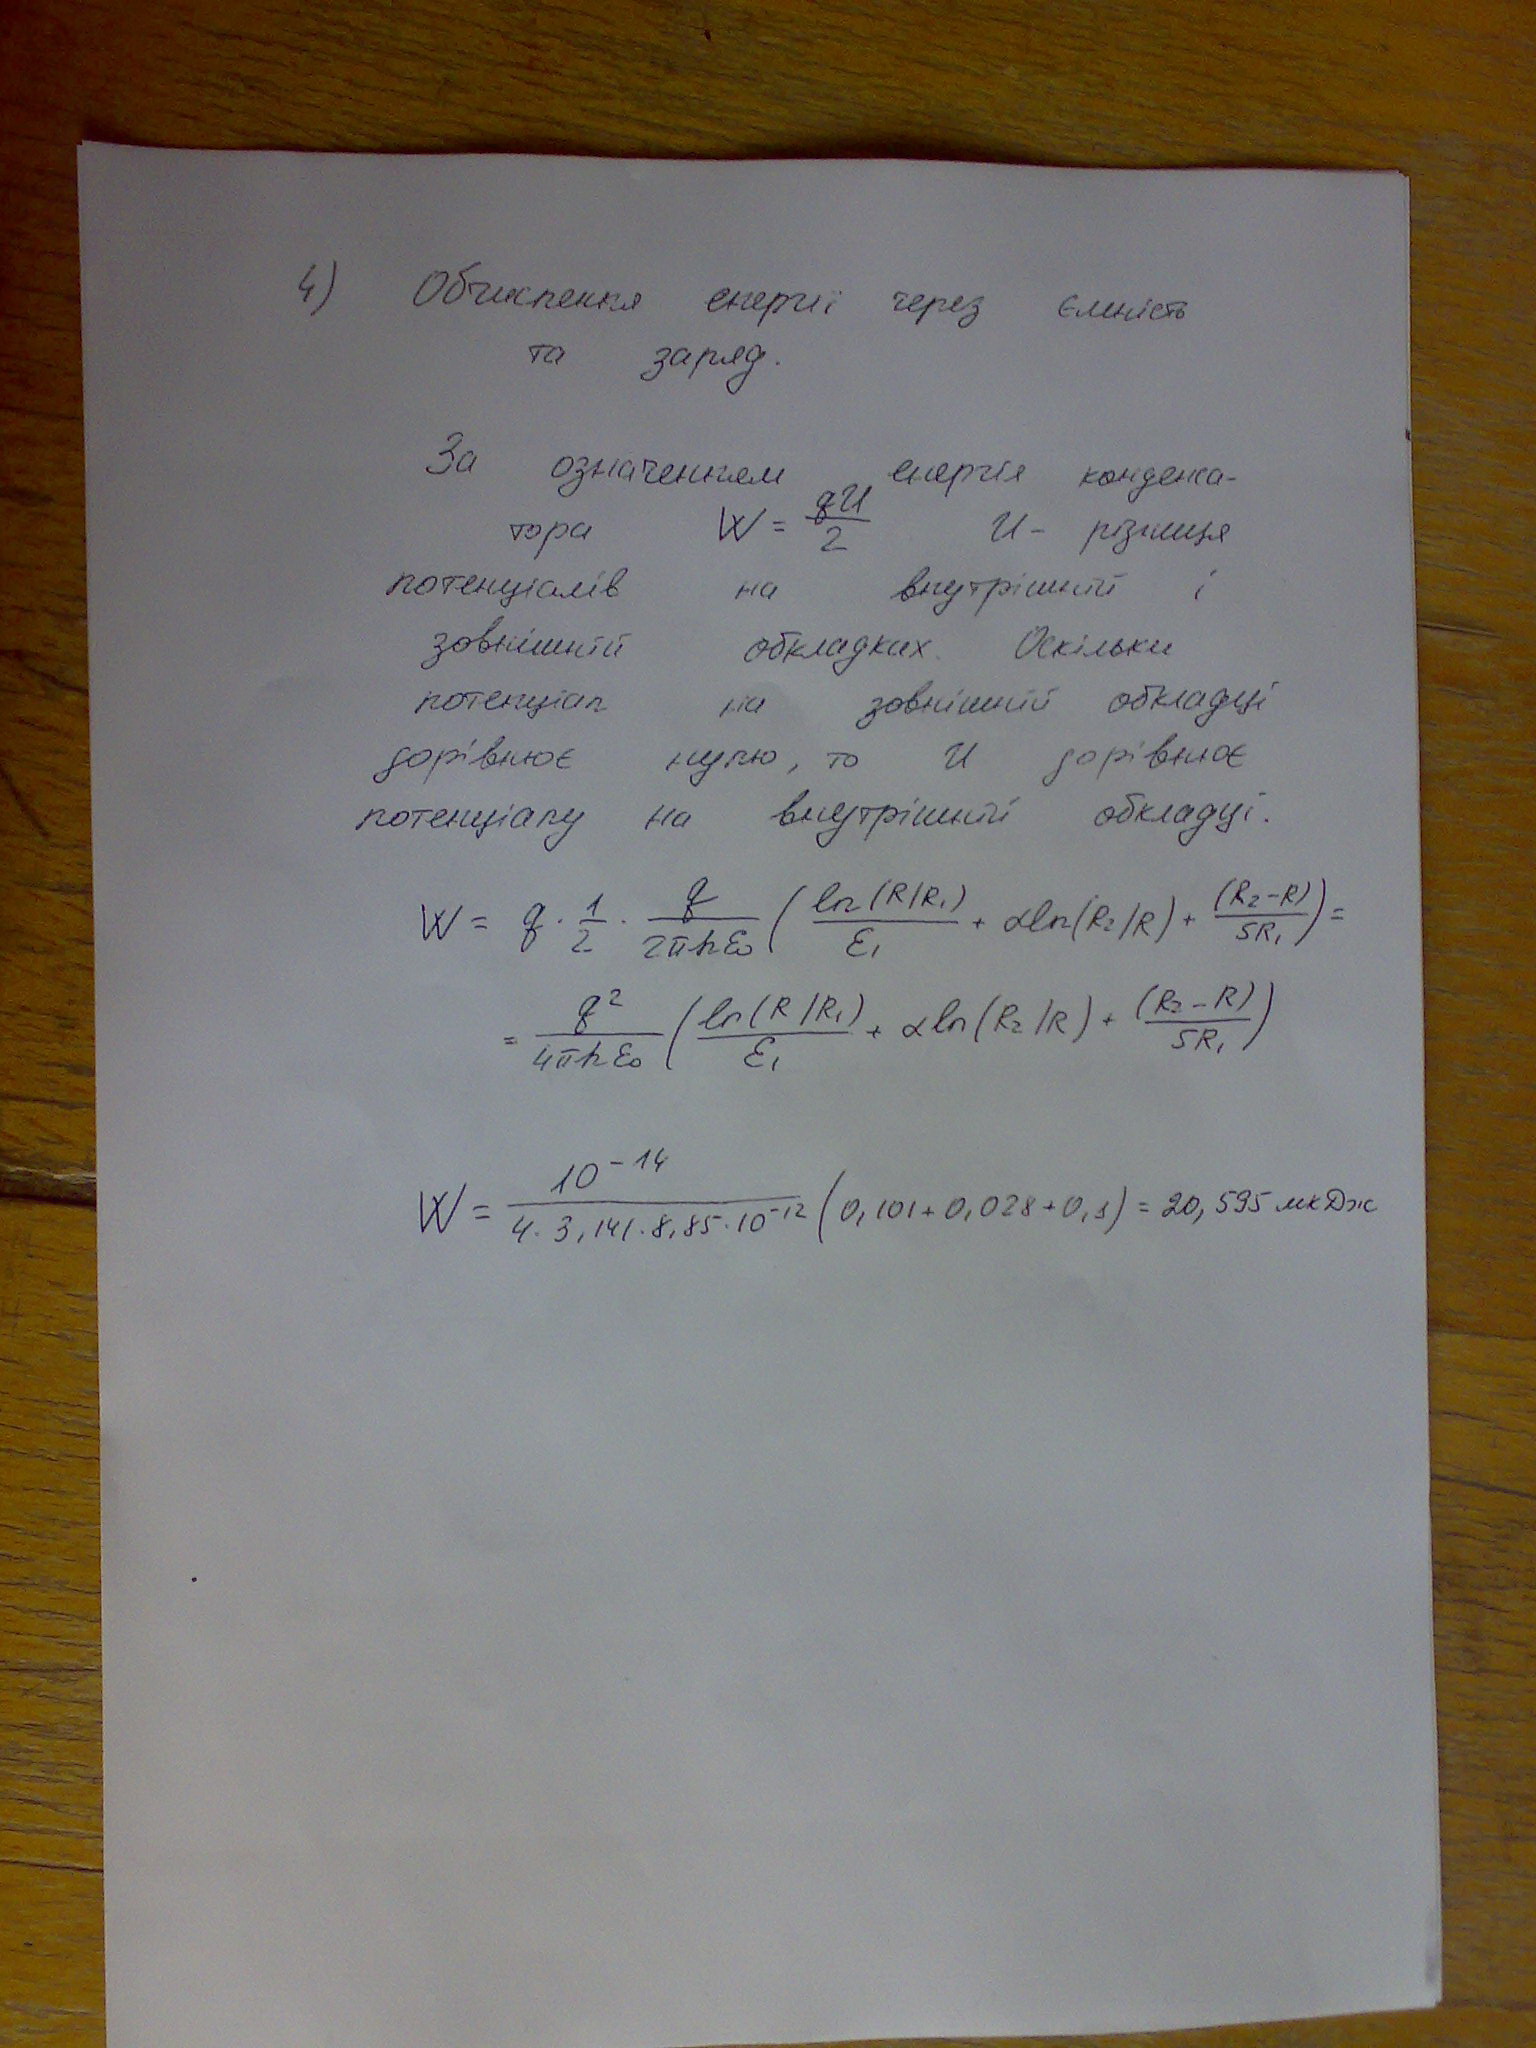 4) Обчислення енергії через ємність
та заряд.
За означенням енергія конденса-
тора W = qU/2 U - різниця
потенціалів на внутрішній і
зовнішній обкладках. Оскільки
потенціал на зовнішній обкладці
дорівнює нулю, то U дорівнює
потенціалу на внутрішній обкладці.
W = q · 1/2 · q/(2πhε₀) ( ln(R/R₁)/ε₁ + αln(R₂/R) + (R₂-R)/5R₁ ) =
= q²/(4πhε₀) ( ln(R/R₁)/ε₁ + αln(R₂/R) + (R₂-R)/5R₁ )
W = 10⁻¹⁴/(4·3,141·8,85·10⁻¹²) (0,101+0,028+0,1) = 20,595 мкДж